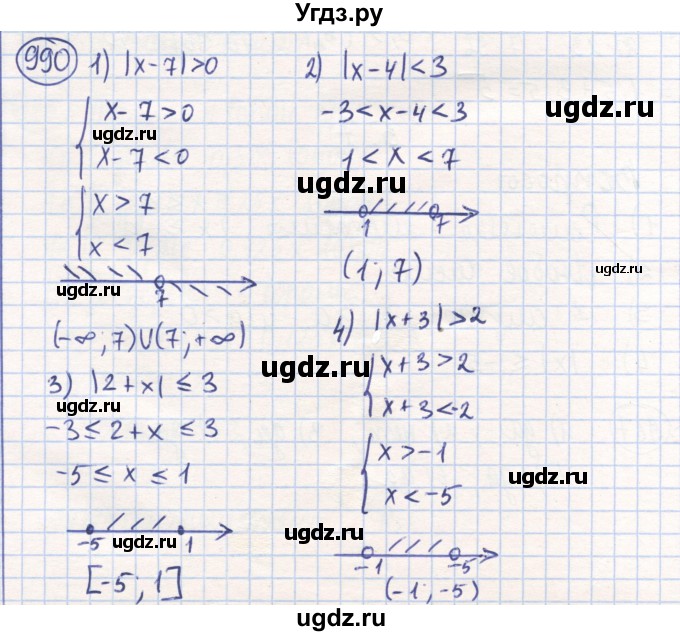 Угдз.ру
990 1) |x-7|>0
{ x-7>0
x-7<0
{ x>7
x<7
7
(-∞;7)∪(7;+∞)
2) |x-4|<3
-3<x-4<3
1<x<7
1 7
(1;7)
3) |2+x|≤3
-3≤2+x≤3
-5≤x≤1
-5 1
[-5;1]
4) |x+3|>2
{ x+3>2
x+3<-2
{ x>-1
x<-5
-1 -5
(-1;-5)
ugdz.ru
ugdz.ru
ugdz.ru
ugdz.ru
ugdz.ru
ugdz.ru
ugdz.ru
ugdz.ru
ugdz.ru
ugdz.ru
ugdz.ru
ugdz.ru